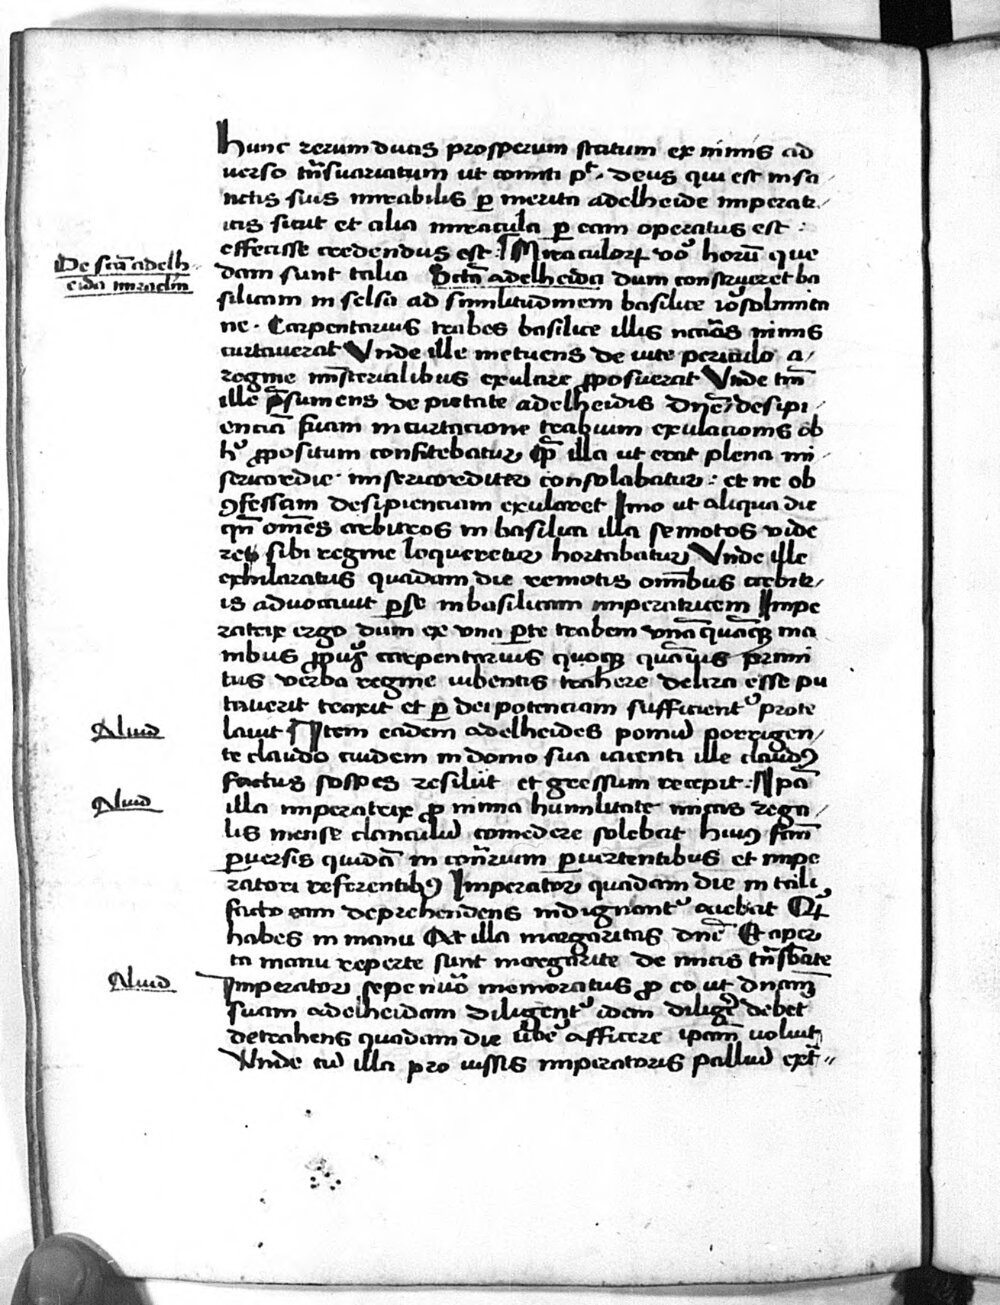 hunc rerum ducis prosperum statum ex nimis ad
verso tn̄suariatum ut comiti pt. deus qui est in sa
nctis suis mirabilis ꝑ merita adelheide imperatr
icis sicut et alia miracula ꝑ eam operatus est :
effecisse credendus est : Miraculoꝝ vo horū que
De scā adelh
dam sunt talia Bctā adelheida dum construeret ba
eida miraclm
silicam in selsa ad similitudinem basilice iosolimita
ne . Carpentarius trabes basilice illis nimis
curtaverat Vnde ille metuens de vite periculo a
regine mīsterialibus exulare ꝓposuerat Vnde tm̄
ille p̄sumens de pietate adelheidis dn̄e desipi
enciā suam in curtacione trabium exulacionis ob
h ꝓpositum confitebatur illa ut erat plena mi
sericordie misericorditer consolabatur : et ne ob
ꝯfessam desipienciam exularet Imo ut aliqua die
qn̄ om̄es arbitros in basilica illa semotos vide
ret sibi regine loqueretur hortabatur Vnde ille
exhilaratus quadam die remotis omībus arbitr
is advocavit ꝑ se in basilicam imperatricem Impe
ratrix ergo dum ex vna ꝑte trabem vnā ma
nibus ꝓpiis carpentarius quoqꝫ quāvis primi
tus verba regine iubentis trahere delira esse pu
taverit traxit et ꝑ dei potenciam sufficient prote
Aliud
lavit Item eadem adelheides pomū porrigen
te claudo cuidem in domo sua iacenti ille claudꝰ
factus sospes resiliit et gressum recepit : Ipā
Aliud
illa imperatrix ꝓ nimia humilitate micas rega
lis mense clanculū comedere solebat huiꝰ
ꝑversis quidā in ꝑvertentibus et impe
ratori referentibꝰ Imperator quadam die in tali
facto eam deprehendens indignant aiebat
habes in manu At illa margaritas dn̄e Et aper
ta manu reperte sunt margarite de micis
Aliud
Imperator sepe nūo memoratus ꝓ eo ut dnām
suam adelheidam diligent idem debet
detrahens quadam die afficere ipam voluit
Vnde cū illa pro iussis imperatoris palliū